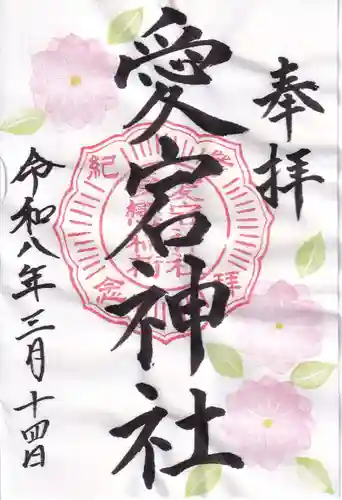 奉拝
愛宕神社
令和八年三月十四日
参拝
紀念